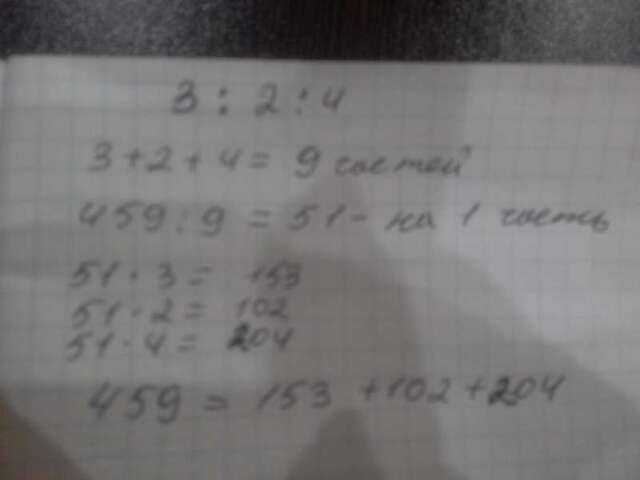 3 : 2 : 4
3 + 2 + 4 = 9 частей
459 : 9 = 51 - на 1 часть
51 · 3 = 153
51 · 2 = 102
51 · 4 = 204
459 = 153 + 102 + 204